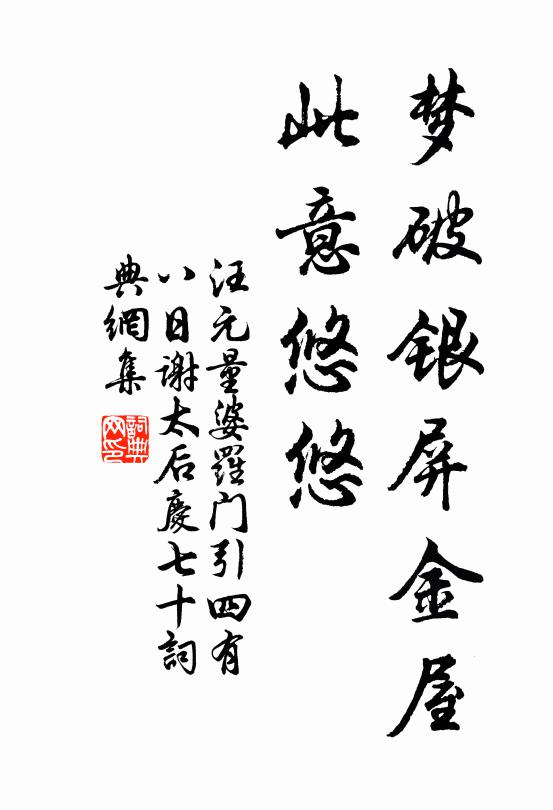 梦破银屏金屋
此意悠悠
汪元量婆羅门引四有
八日谢太后慶七十詞
典網集
詞典网印